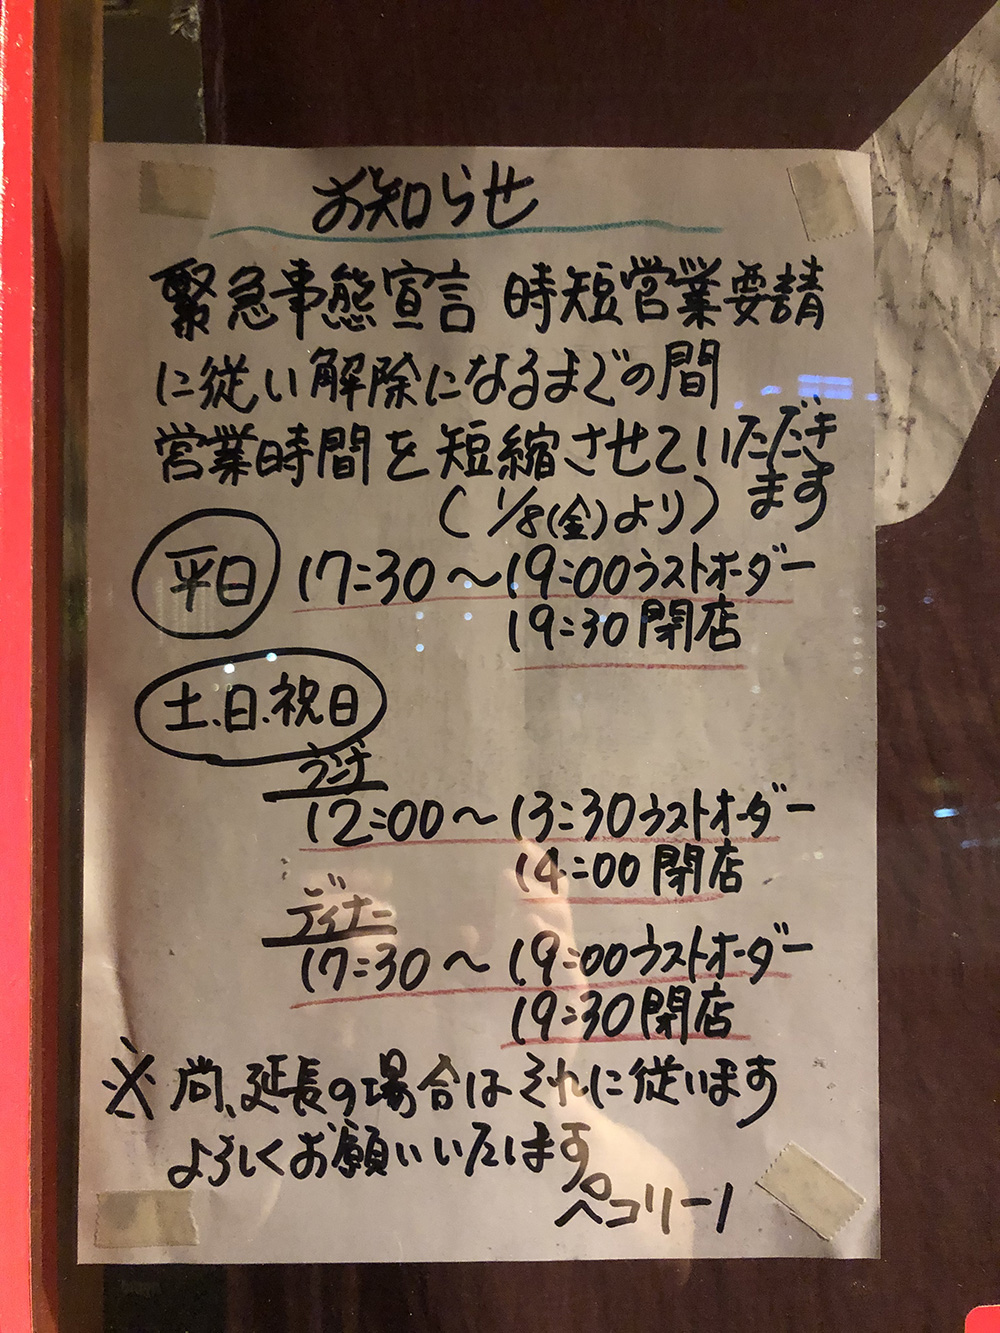 お知らせ
緊急事態宣言 時短営業要請
に従い解除になるまでの間
営業時間を短縮させていただき
ます
(1/8(金)より)
平日 17:30〜19:00ラストオーダー
19:30閉店
土、日、祝日
ランチ
12:00〜13:30ラストオーダー
14:00閉店
ディナー
17:30〜19:00ラストオーダー
19:30閉店
※尚、延長の場合はそれに従います
よろしくお願いいたします
ペコリーノ